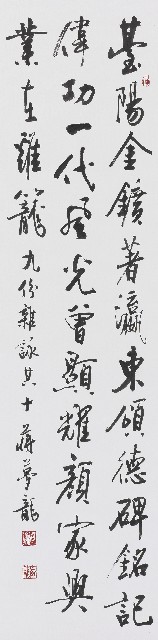 臺陽金鑛著瀛東頌德碑銘記
偉功一代風光曾顯耀顏家興
業在雞籠 九份雜詠其十 蔣夢龍